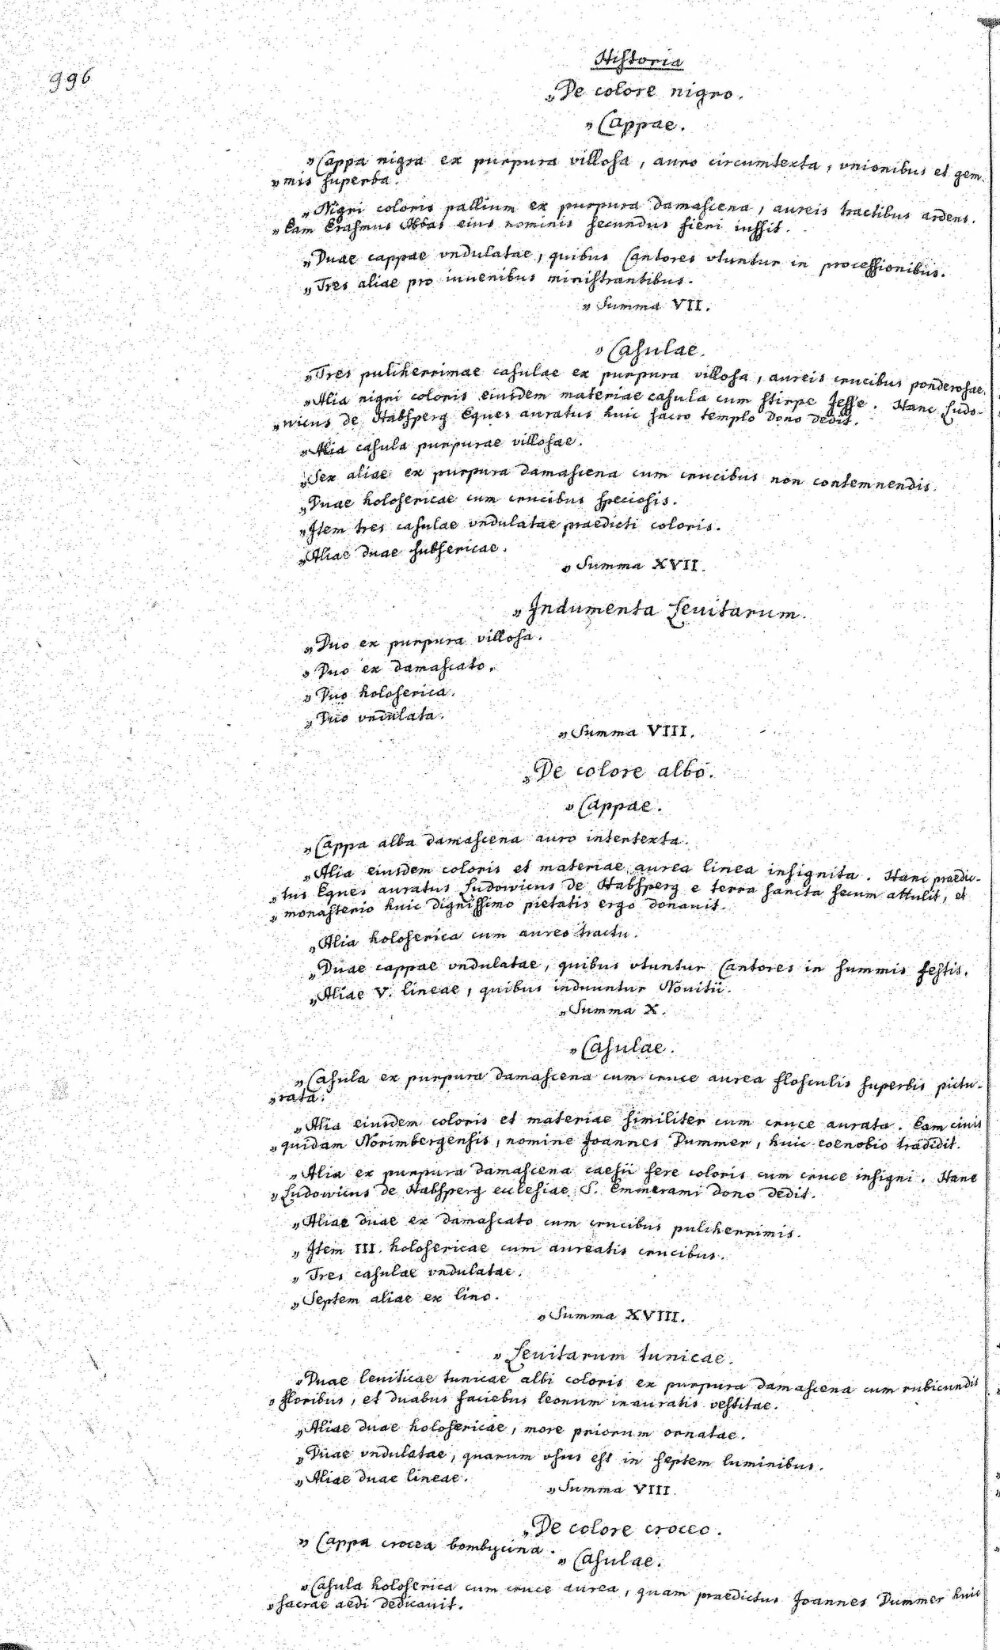 996
Historia
„De colore nigro.
„Cappae.
„Cappa nigra ex purpura villosa, auro circumtexta, vnionibus et gem-
„mis superba.
„Nigri coloris pallium ex purpura damascena, aureis tractibus ardens.
„Eam Erasmus Abbas eius nominis secundus fieri iussit.
„Duae cappae vndulatae, quibus Cantores vtuntur in processionibus.
„Tres aliae pro iuuenibus ministrantibus.
„Summa VII.
„Casulae.
„Tres pulcherrimae casulae ex purpura villosa, aureis crucibus ponderosae.
„Alia nigri coloris eiusdem materiae casula cum stirpe Jesse. Hanc Ludo-
„uicus de Habsperg Eques auratus huic sacro templo dono dedit.
„Alia casula purpurae villosae.
„Sex aliae ex purpura damascena cum crucibus non contemnendis.
„Duae holosericae cum crucibus speciosis.
„Item tres casulae vndulatae praedicti coloris.
„Aliae duae subsericae.
„Summa XVII.
„Indumenta Leuitarum.
„Duo ex purpura villosa.
„Duo ex damascato.
„Duo holoserica.
„Duo vndulata.
„Summa VIII.
„De colore albo.
„Cappae.
„Cappa alba damascena auro intertexta.
„Alia eiusdem coloris et materiae aurea linea insignita. Hanc praedic-
„tus Eques auratus Ludowicus de Habsperg e terra sancta secum attulit, et
„monasterio huic dignissimo pietatis ergo donauit.
„Alia holoserica cum aureo tractu.
„Duae cappae vndulatae, quibus vtuntur Cantores in summis festis.
„Aliae V. lineae, quibus induuntur Nouitii.
„Summa X.
„Casulae.
„Casula ex purpura damascena cum cruce aurea flosculis superbis pictu-
„rata.
„Alia eiusdem coloris et materiae similiter cum cruce aurata. Eam ciuis
„quidam Norimbergensis, nomine Joannes Dummer, huic coenobio tradidit.
„Alia ex purpura damascena caesii fere coloris cum cruce insigni. Hanc
„Ludowicus de Habsperg ecclesiae S. Emmerami dono dedit.
„Aliae duae ex damascato cum crucibus pulcherrimis.
„Item III. holosericae cum aureatis crucibus.
„Tres casulae vndulatae.
„Septem aliae ex lino.
„Summa XVIII.
„Leuitarum tunicae.
„Duae leuiticae tunicae albi coloris ex purpura damascena cum rubicundis
„floribus, et duabus faciebus leonum inauratis vestitae.
„Aliae duae holosericae, more priorum ornatae.
„Duae vndulatae, quarum vsus est in septem luminibus.
„Aliae duae lineae.
„Summa VIII.
„De colore croceo.
„Cappa crocea bombycina.
„Casulae.
„Casula holoserica cum cruce aurea, quam praedictus Joannes Dummer huic
„sacrae aedi dedicauit.